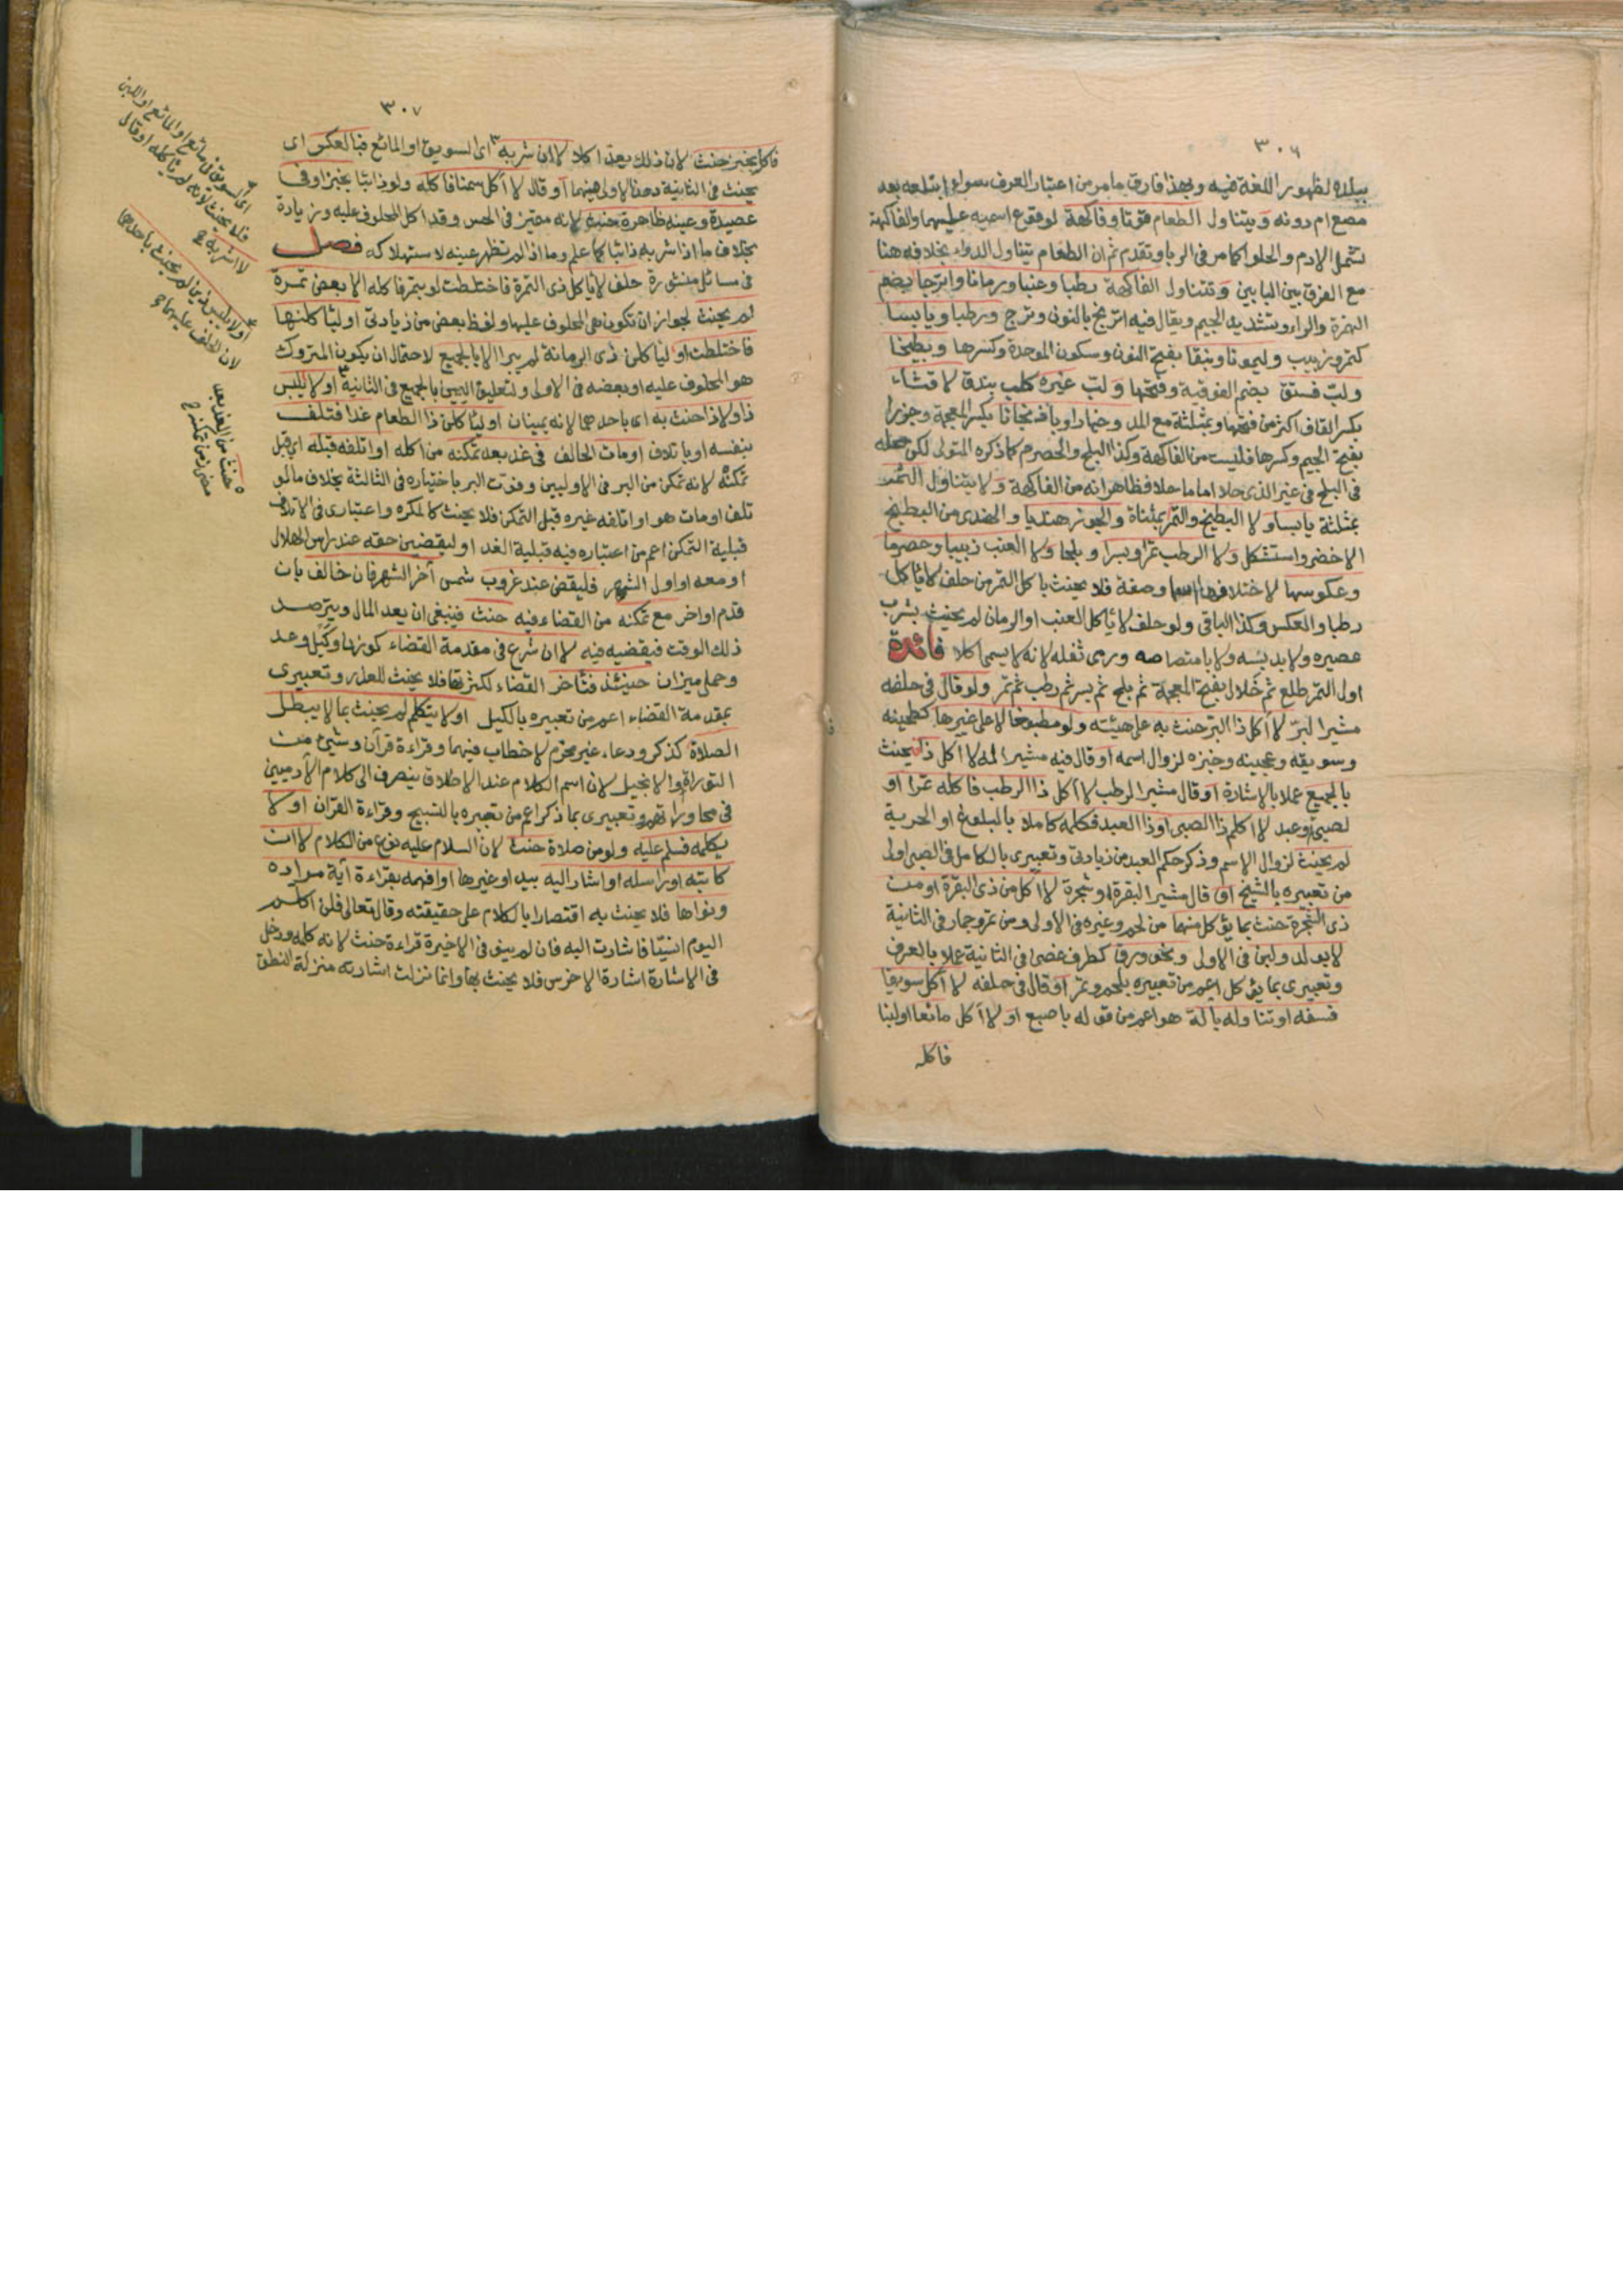 ٣٠٦
ببلده لظهور اللغة فيه وبهذا فارق ما مر من اعتبار العرف سواء ابتلعه بعد
مضغ ام دونه ويتناول الطعام قوتا وفاكهة لوقوع اسمه عليهما والفاكهة
تشمل الادم والحلوا كما مر فى الربا وتقدم ثم ان الطعام يتناول الدواء بخلافه هنا
مع الفرق بين البابين وتتناول الفاكهة رطبا وعنبا ورمانا واترجا بضم
الهمزة والراء وتشديد الجيم ويقال فيه اترنج بالنون وترج ورطبا ويابسا
كتمر وزبيب وليمونا ونبقا بفتح النون وسكون الموحدة وكسرها وبطيخا
ولب فستق بضم الفوقية وفتحها ولب غيره كلب بندق لا قثاء
بكسر القاف اكثر من فتحها وبمثلثة مع المد وخيارا وباذنجانا بكسر المعجمة وجزرا
بفتح الجيم وكسرها فليست من الفاكهة وكذا البلح والحصرم كما ذكره المتولى لكن محله
فى البلح فى غير الذى حلا اما ما حلا فظاهر انه من الفاكهة ولا يتناول الثمر
بمثلثة يابسا ولا البطيخ والتمر بمثناة والجوز هنديا والهندى من البطيخ
الاخضر واستشكل ولا الرطب تمرا وبسرا وبلحا ولا العنب زبيبا وحصرما
وعكوسها لاختلافها اسما وصفة فلا يحنث باكل التمر من حلف لا ياكل
رطبا والعكس وكذا الباقى ولو حلف لا ياكل العنب او الرمان لم يحنث بشرب
عصيره ولا بدبسه ولا بامتصاصه ورمى ثفله لانه لا يسمى اكلا فائدة
اول التمر طلع ثم خلال بفتح المعجمة ثم بلح ثم بسر ثم رطب ثم تمر ولو قال فى حلفه
مشيرا لبر لا آكل ذا البر حنث به على هيئته ولو مطبوخا لا على غيرها كطحينه
وسويقه وعجينه وخبزه لزوال اسمه او قال فيه مشيرا له لا آكل ذا يحنث
بالجميع عملا بالاشارة او قال مشيرا لرطب لا آكل ذا الرطب فاكله تمرا او
لصبى وعبد لا اكلم ذا الصبى او ذا العبد فكلمه كاملا بالبلوغ او الحرية
لم يحنث لزوال الاسم وذكر حكم العبد من زيادتى وتعبيرى بالكامل فى الصبى اولى
من تعبيره بالشيخ او قال مشيرا لبقرة او شجرة لا آكل من ذى البقرة او من
ذى الشجرة حنث بما يؤكل منهما من لحم وغيره فى الاولى ومن ثمر وجمار فى الثانية
لا بولد ولبن فى الاولى ونحو ورق كطرف غصن فى الثانية عملا بالعرف
وتعبيرى بما يؤكل اعم من تعبيره بلحم وثمر او قال فى حلفه لا آكل سويقا
فسفه او تناوله بآلة هو اعم من قوله باصبع او لا آكل مائعا او لبنا
فاكله
٣٠٧
فاكله بخبز حنث لان ذلك يعد اكلا لا ان شربه اى السويق او المائع فبالعكس اى
يحنث فى الثانية دون الاولى فيهما او قال لا آكل سمنا فاكله ولو ذائبا بخبز او فى
عصيدة وعينه ظاهرة حنث لانه متميز فى الحس وقد اكل المحلوف عليه وزيادة
بخلاف ما اذا شربه ذائبا كما علم وما اذا لم تظهر عينه لاستهلاكه فصل
فى مسائل منثورة حلف لا ياكل ذى التمرة فاختلطت لو بتمر فاكله الا بعض تمرة
لم يحنث لجواز ان تكون هى المحلوف عليها ولفظ بعض من زيادتى او ليأكلنها
فاختلطت او ليأكلن ذى الرمانة لم يبر الا بالجميع لاحتمال ان يكون المتروك
هو المحلوف عليه او بعضه فى الاولى ولتعليق اليمين بالجميع فى الثانية او لا يلبس
ذا ولا ذا حنث به اى باحدهما لانه يمينان او ليأكلن ذا الطعام غدا فتلف
بنفسه او باتلاف او مات الحالف فى غد بعد تمكنه من اكله او اتلفه قبله اى قبل
تمكنه لانه تمكن من البر فى الاوليين وفوت البر باختياره فى الثالثة بخلاف ما لو
تلف او مات هو او اتلفه غيره قبل التمكن فلا يحنث كالمكره واعتبارى فى الاتلاف
قبلية التمكن اعم من اعتباره فيه قبلية الغد او ليقضين حقه عند راس الهلال
او معه او اول الشهر فليقض عند غروب شمس آخر الشهر فان خالف بان
قدم او اخر مع تمكنه من القضاء فيه حنث فينبغى ان يعد المال ويترصد
ذلك الوقت فيقضيه فيه لا ان شرع فى مقدمة القضاء كوزن وكيل وعد
وحمل ميزان حينئذ فتاخر القضاء لكثرتها فلا يحنث للعذر وتعبيرى
بمقدمة القضاء اعم من تعبيره بالكيل او لا يتكلم لم يحنث بما لا يبطل
الصلاة كذكر ودعاء غير محرم لا خطاب فيهما وقراءة قرآن وشئ من
التوراة والانجيل لان اسم الكلام عند الاطلاق ينصرف الى كلام الآدميين
فى محاوراتهم وتعبيرى بما ذكر اعم من تعبيره بالتسبيح وقراءة القرآن او لا
يكلمه فسلم عليه ولو من صلاة حنث لان السلام عليه نوع من الكلام لا ان
كاتبه او راسله او اشار اليه بيد او غيرها او افهمه بقراءة آية مراده
ونواها فلا يحنث به اقتصارا بالكلام على حقيقته وقال تعالى فلن اكلم
اليوم انسيا فاشارت اليه فان لم ينو فى الاخيرة قراءة حنث لانه كلمه ودخل
فى الاشارة اشارة الاخرس فلا يحنث بها وانما نزلت اشارته منزلة النطق
اى السويق فى مائع او المائع او اللبن
فلا يحنث لانه لم ياكله او قال
لا اشربه
او لا يلبس ذين لم يحنث باحدهما
لان الحلف عليهما
حنث من الغد بعد
مضى زمن تمكنه